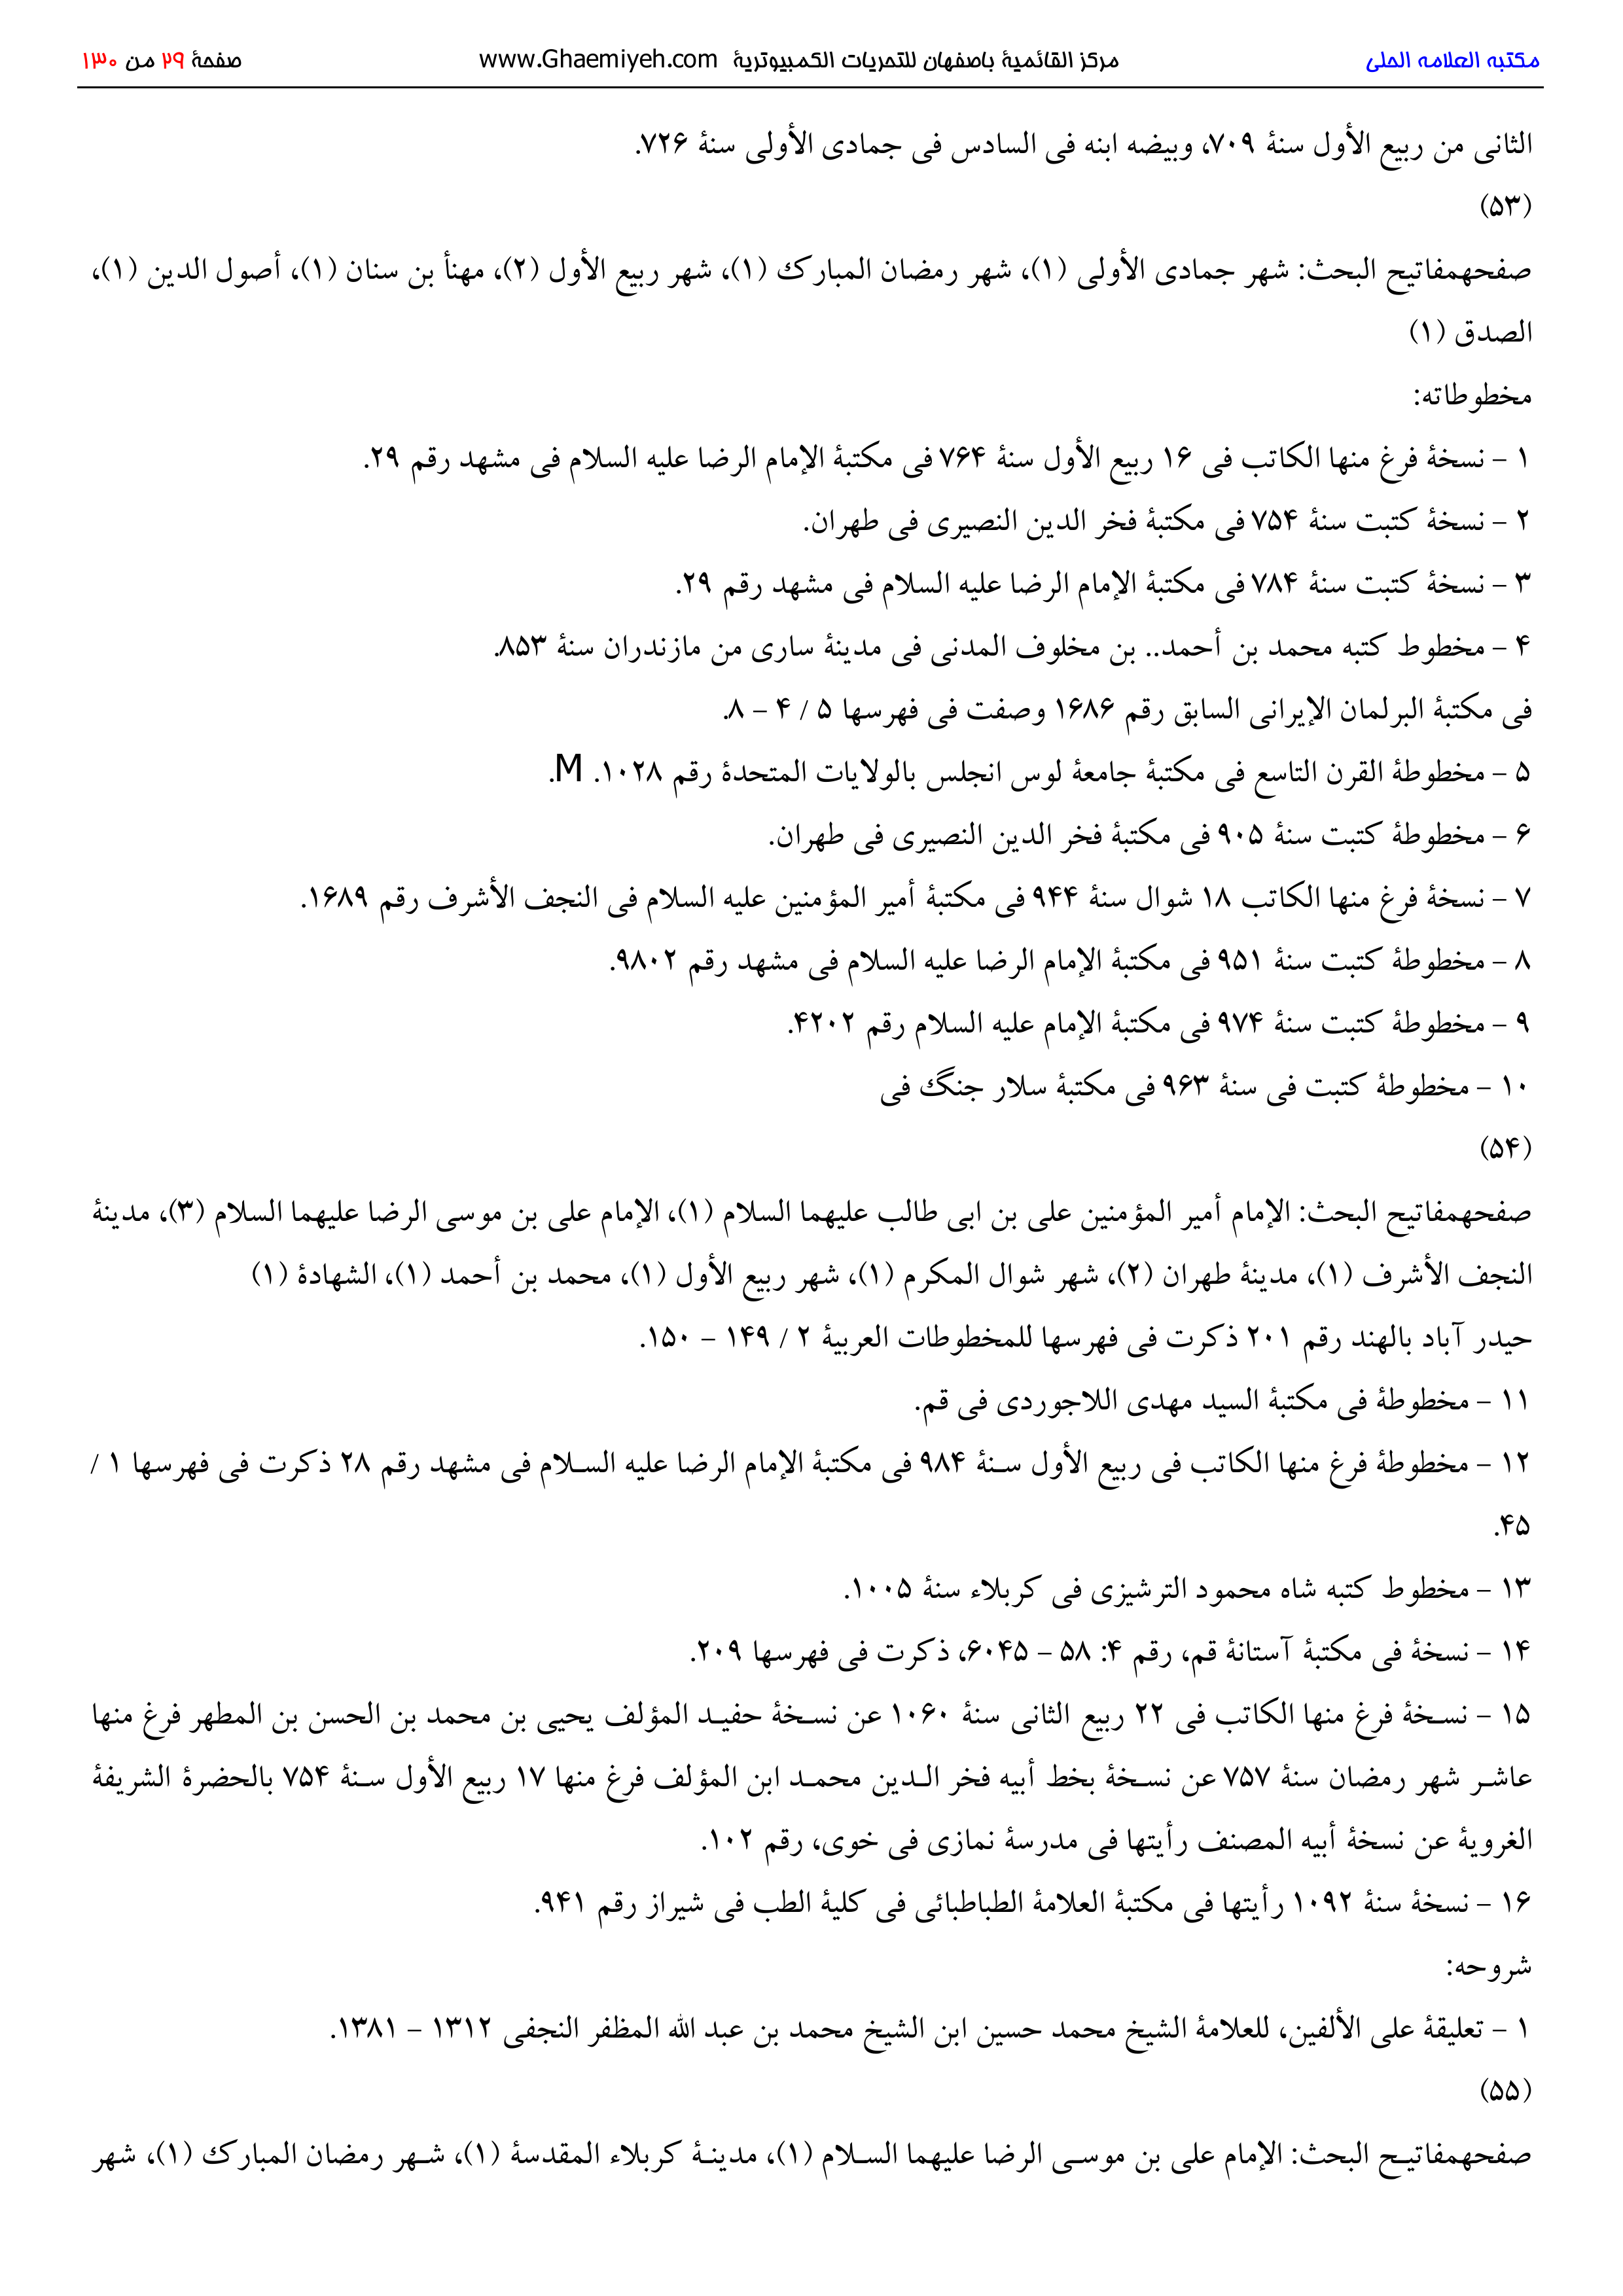 مكتبه العلامه الحلی مركز القائمیهٔ باصفهان للتحریات الكمبیوتریهٔ www.Ghaemiyeh.com صفحهٔ ۲۹ من ۱۳۰
الثانی من ربیع الأول سنهٔ ۷۰۹، وبیضه ابنه فی السادس فی جمادی الأولی سنهٔ ۷۲۶.
(۵۳)
صفحهمفاتیح البحث: شهر جمادی الأولی (۱)، شهر رمضان المبارك (۱)، شهر ربیع الأول (۲)، مهنأ بن سنان (۱)، أصول الدین (۱)،
الصدق (۱)
مخطوطاته:
۱ – نسخهٔ فرغ منها الكاتب فی ۱۶ ربیع الأول سنهٔ ۷۶۴ فی مكتبهٔ الإمام الرضا علیه السلام فی مشهد رقم ۲۹.
۲ – نسخهٔ كتبت سنهٔ ۷۵۴ فی مكتبهٔ فخر الدین النصیری فی طهران.
۳ – نسخهٔ كتبت سنهٔ ۷۸۴ فی مكتبهٔ الإمام الرضا علیه السلام فی مشهد رقم ۲۹.
۴ – مخطوط كتبه محمد بن أحمد.. بن مخلوف المدنی فی مدینهٔ ساری من مازندران سنهٔ ۸۵۳.
فی مكتبهٔ البرلمان الإیرانی السابق رقم ۱۶۸۶ وصفت فی فهرسها ۵ / ۴ – ۸.
۵ – مخطوطهٔ القرن التاسع فی مكتبهٔ جامعهٔ لوس انجلس بالولایات المتحدهٔ رقم ۱۰۲۸. M.
۶ – مخطوطهٔ كتبت سنهٔ ۹۰۵ فی مكتبهٔ فخر الدین النصیری فی طهران.
۷ – نسخهٔ فرغ منها الكاتب ۱۸ شوال سنهٔ ۹۴۴ فی مكتبهٔ أمیر المؤمنین علیه السلام فی النجف الأشرف رقم ۱۶۸۹.
۸ – مخطوطهٔ كتبت سنهٔ ۹۵۱ فی مكتبهٔ الإمام الرضا علیه السلام فی مشهد رقم ۹۸۰۲.
۹ – مخطوطهٔ كتبت سنهٔ ۹۷۴ فی مكتبهٔ الإمام علیه السلام رقم ۴۲۰۲.
۱۰ – مخطوطهٔ كتبت فی سنهٔ ۹۶۳ فی مكتبهٔ سلار جنگ فی
(۵۴)
صفحهمفاتیح البحث: الإمام أمیر المؤمنین علی بن ابی طالب علیهما السلام (۱)، الإمام علی بن موسی الرضا علیهما السلام (۳)، مدینهٔ
النجف الأشرف (۱)، مدینهٔ طهران (۲)، شهر شوال المكرم (۱)، شهر ربیع الأول (۱)، محمد بن أحمد (۱)، الشهادهٔ (۱)
حیدر آباد بالهند رقم ۲۰۱ ذكرت فی فهرسها للمخطوطات العربیهٔ ۲ / ۱۴۹ – ۱۵۰.
۱۱ – مخطوطهٔ فی مكتبهٔ السید مهدی اللاجوردی فی قم.
۱۲ – مخطوطهٔ فرغ منها الكاتب فی ربیع الأول سنهٔ ۹۸۴ فی مكتبهٔ الإمام الرضا علیه السلام فی مشهد رقم ۲۸ ذكرت فی فهرسها ۱ /
۴۵.
۱۳ – مخطوط كتبه شاه محمود الترشیزی فی كربلاء سنهٔ ۱۰۰۵.
۱۴ – نسخهٔ فی مكتبهٔ آستانهٔ قم، رقم ۴: ۵۸ – ۶۰۴۵، ذكرت فی فهرسها ۲۰۹.
۱۵ – نسخهٔ فرغ منها الكاتب فی ۲۲ ربیع الثانی سنهٔ ۱۰۶۰ عن نسخهٔ حفید المؤلف یحیی بن محمد بن الحسن بن المطهر فرغ منها
عاشر شهر رمضان سنهٔ ۷۵۷ عن نسخهٔ بخط أبیه فخر الدین محمد ابن المؤلف فرغ منها ۱۷ ربیع الأول سنهٔ ۷۵۴ بالحضرهٔ الشریفهٔ
الغرویهٔ عن نسخهٔ أبیه المصنف رأیتها فی مدرسهٔ نمازی فی خوی، رقم ۱۰۲.
۱۶ – نسخهٔ سنهٔ ۱۰۹۲ رأیتها فی مكتبهٔ العلامهٔ الطباطبائی فی كلیهٔ الطب فی شیراز رقم ۹۴۱.
شروحه:
۱ – تعلیقهٔ علی الألفین، للعلامهٔ الشیخ محمد حسین ابن الشیخ محمد بن عبد الله المظفر النجفی ۱۳۱۲ – ۱۳۸۱.
(۵۵)
صفحهمفاتیح البحث: الإمام علی بن موسی الرضا علیهما السلام (۱)، مدینهٔ كربلاء المقدسهٔ (۱)، شهر رمضان المبارك (۱)، شهر